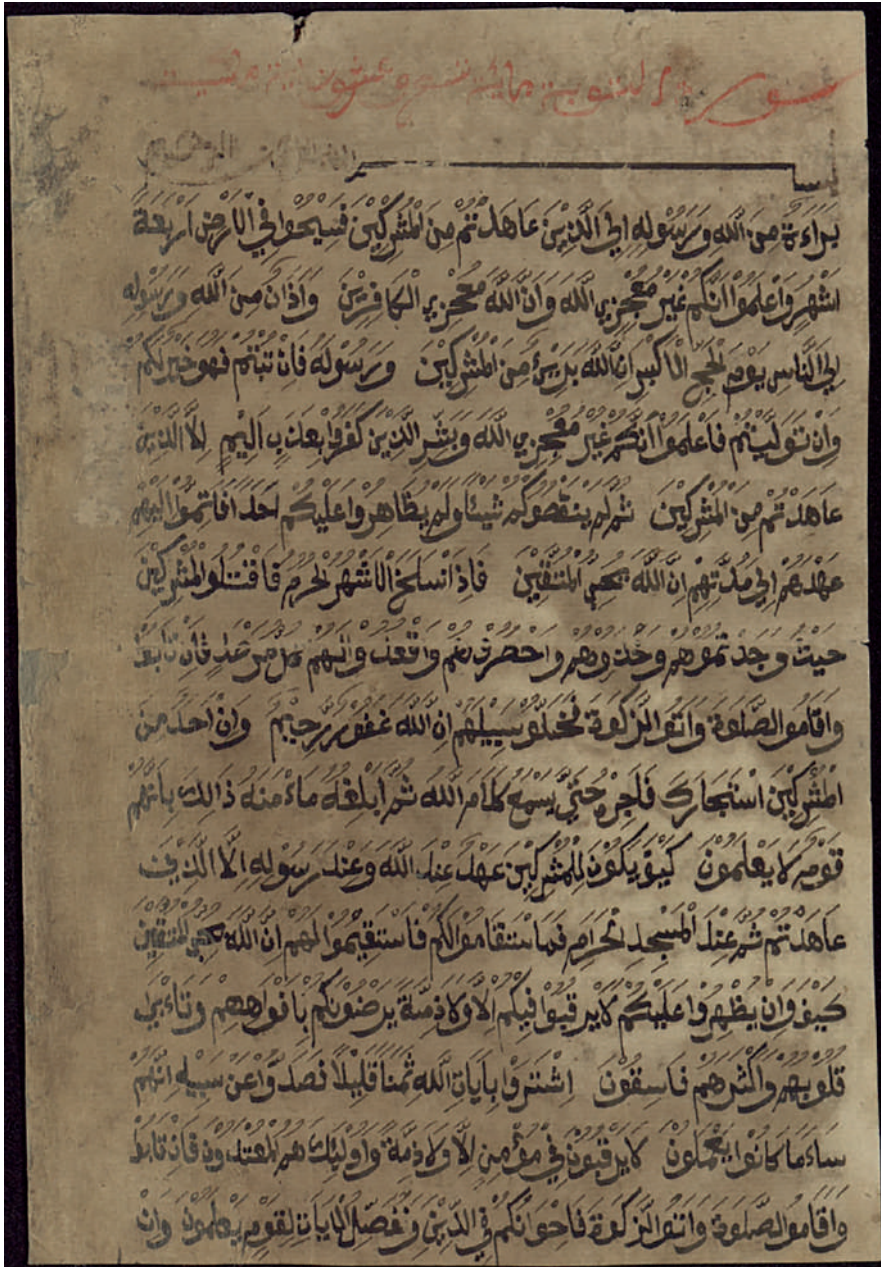 سورة التوبة مائة تسع و عشرون آية
بسم الله الرحمن الرحيم
بَرَاءَةٌ مِنَ اللَّهِ وَرَسُوْلِهِ اِلَى الَّذِيْنَ عَاهَدْتُمْ مِنَ الْمُشْرِكِيْنَ فَسِيْحُوْا فِي الْاَرْضِ اَرْبَعَةَ
اَشْهُرٍ وَاعْلَمُوْا اَنَّكُمْ غَيْرُ مُعْجِزِي اللَّهِ وَاَنَّ اللَّهَ مُعْجِزِي الْكَافِرِيْنَ وَاَذَانٌ مِنَ اللَّهِ وَرَسُوْلِهِ
اِلَى النَّاسِ يَوْمَ الْحَجِّ الْاَكْبَرِ اِنَّ اللَّهَ بَرِيْءٌ مِنَ الْمُشْرِكِيْنَ وَرَسُوْلُهُ فَاِنْ تُبْتُمْ فَهُوَ خَيْرٌ لَكُمْ
وَاِنْ تَوَلَّيْتُمْ فَاعْلَمُوْا اَنَّكُمْ غَيْرُ مُعْجِزِي اللَّهِ وَبَشِّرِ الَّذِيْنَ كَفَرُوْا بِعَذَابٍ اَلِيْمٍ اِلَّا الَّذِيْنَ
عَاهَدْتُمْ مِنَ الْمُشْرِكِيْنَ ثُمَّ لَمْ يَنْقُصُوْكُمْ شَيْئًا وَلَمْ يُظَاهِرُوْا عَلَيْكُمْ اَحَدًا فَاَتِمُّوْا اِلَيْهِمْ
عَهْدَهُمْ اِلَى مُدَّتِهِمْ اِنَّ اللَّهَ يُحِبُّ الْمُتَّقِيْنَ فَاِذَا انْسَلَخَ الْاَشْهُرُ الْحُرُمُ فَاقْتُلُو الْمُشْرِكِيْنَ
حَيْثُ وَجَدْتُمُوْهُمْ وَخُذُوْهُمْ وَاحْصُرُوْهُمْ وَاقْعُدُوْا لَهُمْ كُلَّ مَرْصَدٍ فَاِنْ تَابُوْا
وَاَقَامُو الصَّلَوةَ وَاٰتَوُ الزَّكَوةَ فَخَلُّوْ سَبِيْلَهُمْ اِنَّ اللَّهَ غَفُوْرٌ رَحِيْمٌ وَاِنْ اَحَدٌ مِنَ
الْمُشْرِكِيْنَ اسْتَجَارَكَ فَاَجِرْهُ حَتَّى يَسْمَعَ كَلَامَ اللَّهِ ثُمَّ اَبْلِغْهُ مَاْمَنَهُ ذَالِكَ بِاَنَّهُمْ
قَوْمٌ لَا يَعْلَمُوْنَ كَيْفَ يَكُوْنُ لِلْمُشْرِكِيْنَ عَهْدٌ عِنْدَ اللَّهِ وَعِنْدَ رَسُوْلِهِ اِلَّا الَّذِيْنَ
عَاهَدْتُمْ ثُمَّ عِنْدَ الْمَسْجِدِ الْحَرَامِ فَمَا اسْتَقَامُوْا لَكُمْ فَاسْتَقِيْمُوْا لَهُمْ اِنَّ اللَّهَ يُحِبُّ الْمُتَّقِيْنَ
كَيْفَ وَاِنْ يَظْهَرُوْا عَلَيْكُمْ لَا يَرْقُبُوْا فِيْكُمْ اِلًّا وَلَا ذِمَّةً يُرْضُوْنَكُمْ بِاَفْوَاهِهِمْ وَتَاْبَى
قُلُوْبُهُمْ وَاَكْثَرُهُمْ فَاسِقُوْنَ اِشْتَرَوْا بِاٰيَاتِ اللَّهِ ثَمَنًا قَلِيْلًا فَصَدُّوْا عَنْ سَبِيْلِهِ اِنَّهُمْ
سَاءَ مَا كَانُوْا يَعْمَلُوْنَ لَا يَرْقُبُوْنَ فِيْ مُؤْمِنٍ اِلًّا وَلَا ذِمَّةً وَاُولَئِكَ هُمُ الْمُعْتَدُوْنَ فَاِنْ تَابُوْا
وَاَقَامُو الصَّلَوةَ وَاٰتَوُ الزَّكَوةَ فَاِخْوَانُكُمْ فِي الدِّيْنِ وَنُفَصِّلُ الْاٰيَاتِ لِقَوْمٍ يَعْلَمُوْنَ وَاِنْ